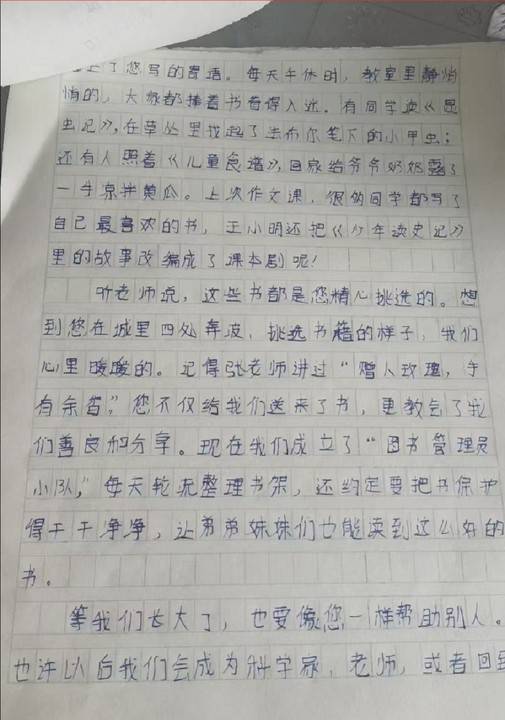 了您写的寄语。每天午休时，教室里静悄
悄的，大家都捧着书看得入迷。有同学读《昆
虫记》，在草丛里找起了法布尔笔下的小甲虫；
还有人照着《儿童食谱》，回家给爷爷奶奶露了
一手凉拌黄瓜。上次作文课，很多同学都写了
自己最喜欢的书，王小明还把《少年读史记》
里的故事改编成了课本剧呢！
听老师说，这些书都是您精心挑选的。想
到您在城里四处奔波，挑选书籍的样子，我们
心里暖暖的。记得张老师讲过“赠人玫瑰，手
有余香”，您不仅给我们送来了书，更教会了我
们善良和分享。现在我们成立了“图书管理员
小队，”每天轮流整理书架，还约定要把书保护
得干干净净，让弟弟妹妹们也能读到这么好的
书。
等我们长大了，也要像您一样帮助别人。
也许以后我们会成为科学家，老师，或者回到